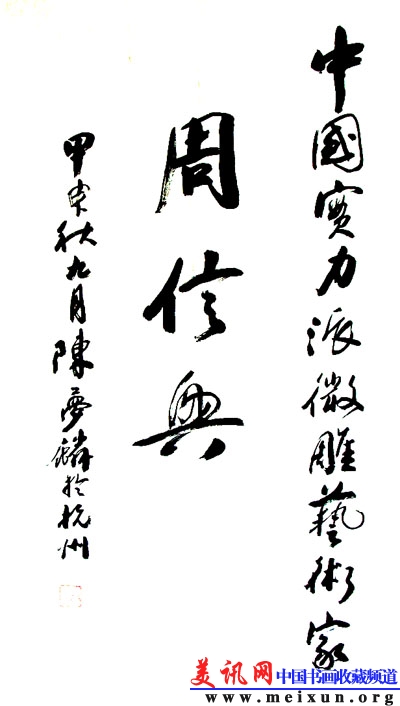 中國實力派微雕藝術家
周信興
甲申秋九月陳夢麟於杭州
美讯网中国书画收藏频道
www.meixun.org